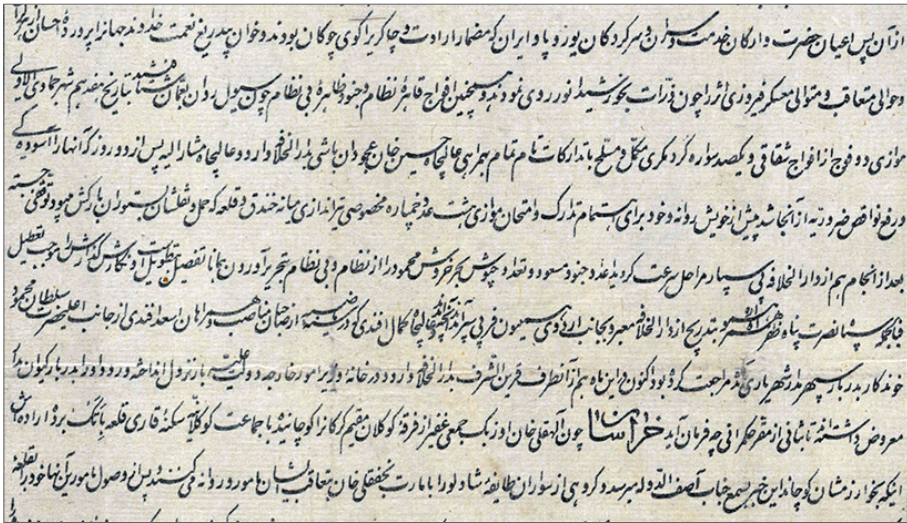 از آن پس اعیان حضرت و ارکان خدمت و سران و سرکردگان یورو پا و ایران که مضمار ارادت و چاکری را گوی چوکان بودند و خوان بیدریغ نعمت خداوند جهانرا پرورده احسان
و حوالی متعاقب و متوالی معسکر فیروزی اثر را چون ذرات بخورشید انور روی نمودند و همچنین افواج قاهره نظام و جنود ظاهره بی نظام چون سیول روان بعمان بتاریخ هفدهم شهر جمادی الاولی
موازی دو فوج از افواج شقاقی و یکصد سواره کرد مکری مکمل و مسلح با تدارکات تام تمام بهمراهی عالیجاه حسین خان باشی بدار الخلافه وارد و عالیجاه مشار الیه پس از دو روز که آنها را آسوده
و رفع نواقص ضروریه از آنجا شد پیش از خویش روانه و خود برای اهتمام تدارک و امتحان موازی هشت عدد خمپاره مخصوصی تیراندازی میانه خندق و قلعه که حمل و نقلشان بستوران بارکش میبود توقفی جسته
بعد از انجام هم از دار الخلافه پی سپار مراحل سرعت گردید عده جنود مسعود و تعداد جیوش بحر خروش محمود را از نظام و بی نظام بتحریر آوردن بجا با تفصیل تطویل است و نگارش گذارش را موجب تعطیل
بتدریج از دار الخلافه معبر و بجانب اردوی همیون قریب عالیجاه کمال افندی که در از صاحبان مناصب و همراهان اسعد افندی از جانب اعلیحضرت سلطان محمود
خوندکار بدربار سپهر مدار شهریاری آمده مراجعت کرده بود اکنون در این ماه هم از آنطرف قرین الشرف بدار الخلافه وارد و در خانه وزیر امور خارجه دولت علیه بار نزول انداخته ورود او را بدربار کیوان
معروض داشته تا ثانی از مقر حکمرانی چه فرمان آید خراسان چون الهقلی خان اوزبک جمعی غفیر از فرقه کوکلان مقیم کرکانرا کوچانیده با جماعت کوکلانیه سکنه قاری قلعه باتک برده اراده اش
اینکه بخوارزمشان کوچاند این خبر بسمع جناب آصف الدوله میرسد و گروهی از سواران طایفه شادلو را با مارت نجفقلی خان بتعاقب ایشان مامور و روانه میکنند و پس از وصول مامورین آنها خود را بقلعه